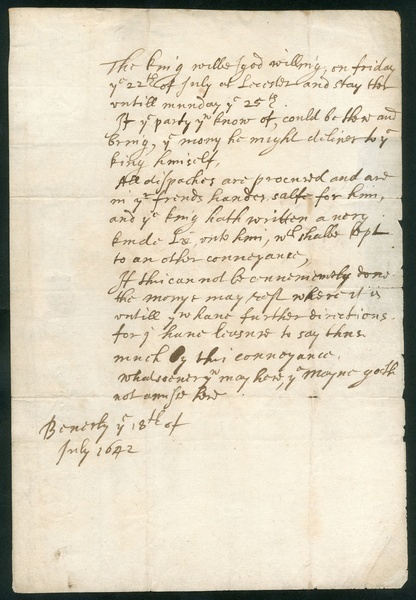 The king wilbe god willing, on friday
yᵉ 22th of July at Leicester and stay ther
untill munday yᵉ 25th.
If yᵉ party yᵘ know of, could be ther and
bring, yᵉ mony he might deliver to yᵉ
king himself,
All dispaches are procured and are
in yʳ frends handes, salfe for him,
and yᵉ king hath written a very
kinde unto him, wᶜʰ shalbe kept
to an other conveyance,
If this can not be conveniently done
the monye may rest where it is
untill yᵘ have further directions.
for I have leasure to say thus
much by this conveyance.
whatsoever yᵘ may here, yᵉ mayne goeth
not amisse here
Beverly yᵉ 18th of
July 1642